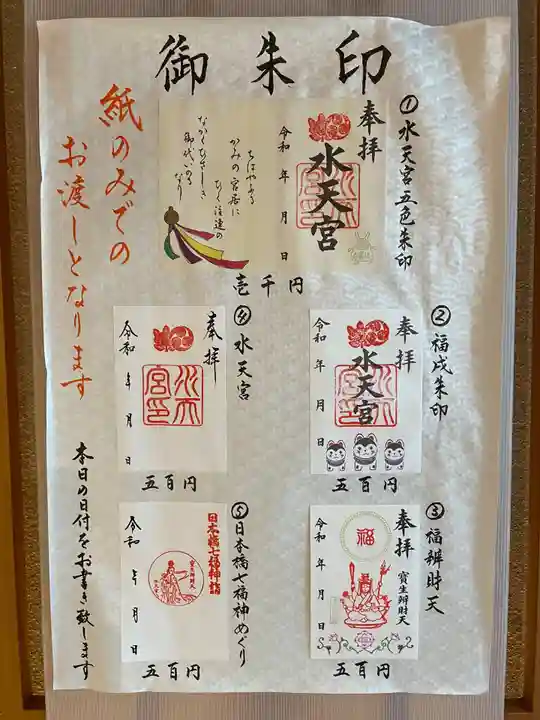 御朱印
紙のみでの
お渡しとなります
①水天宮五色朱印
奉拝
水天宮
令和 年 月 日
ちはやふる
かみの宮居に
ひく注連の
ながくひさしき
御代いのるなり
壱千円
②福戌朱印
奉拝
水天宮
令和 年 月 日
五百円
③福辨財天
奉拝
寳生辨財天
福
令和 年 月 日
五百円
④水天宮
奉拝
水天宮印
令和 年 月 日
五百円
⑤日本橋七福神めぐり
日本橋七福神詣
寳生辨財天
令和 年 月 日
五百円
本日の日付をお書き致します